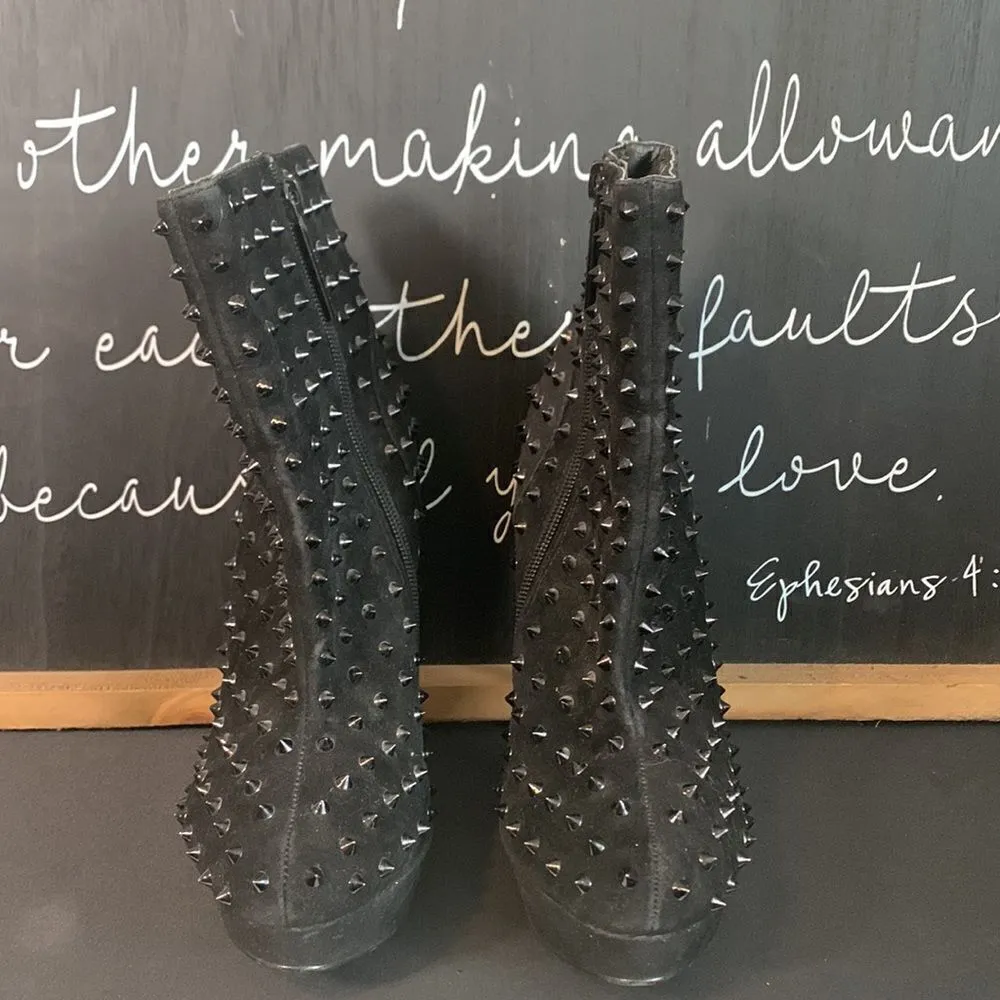 other making allowan
r each other faults
because y love.
Ephesians 4: